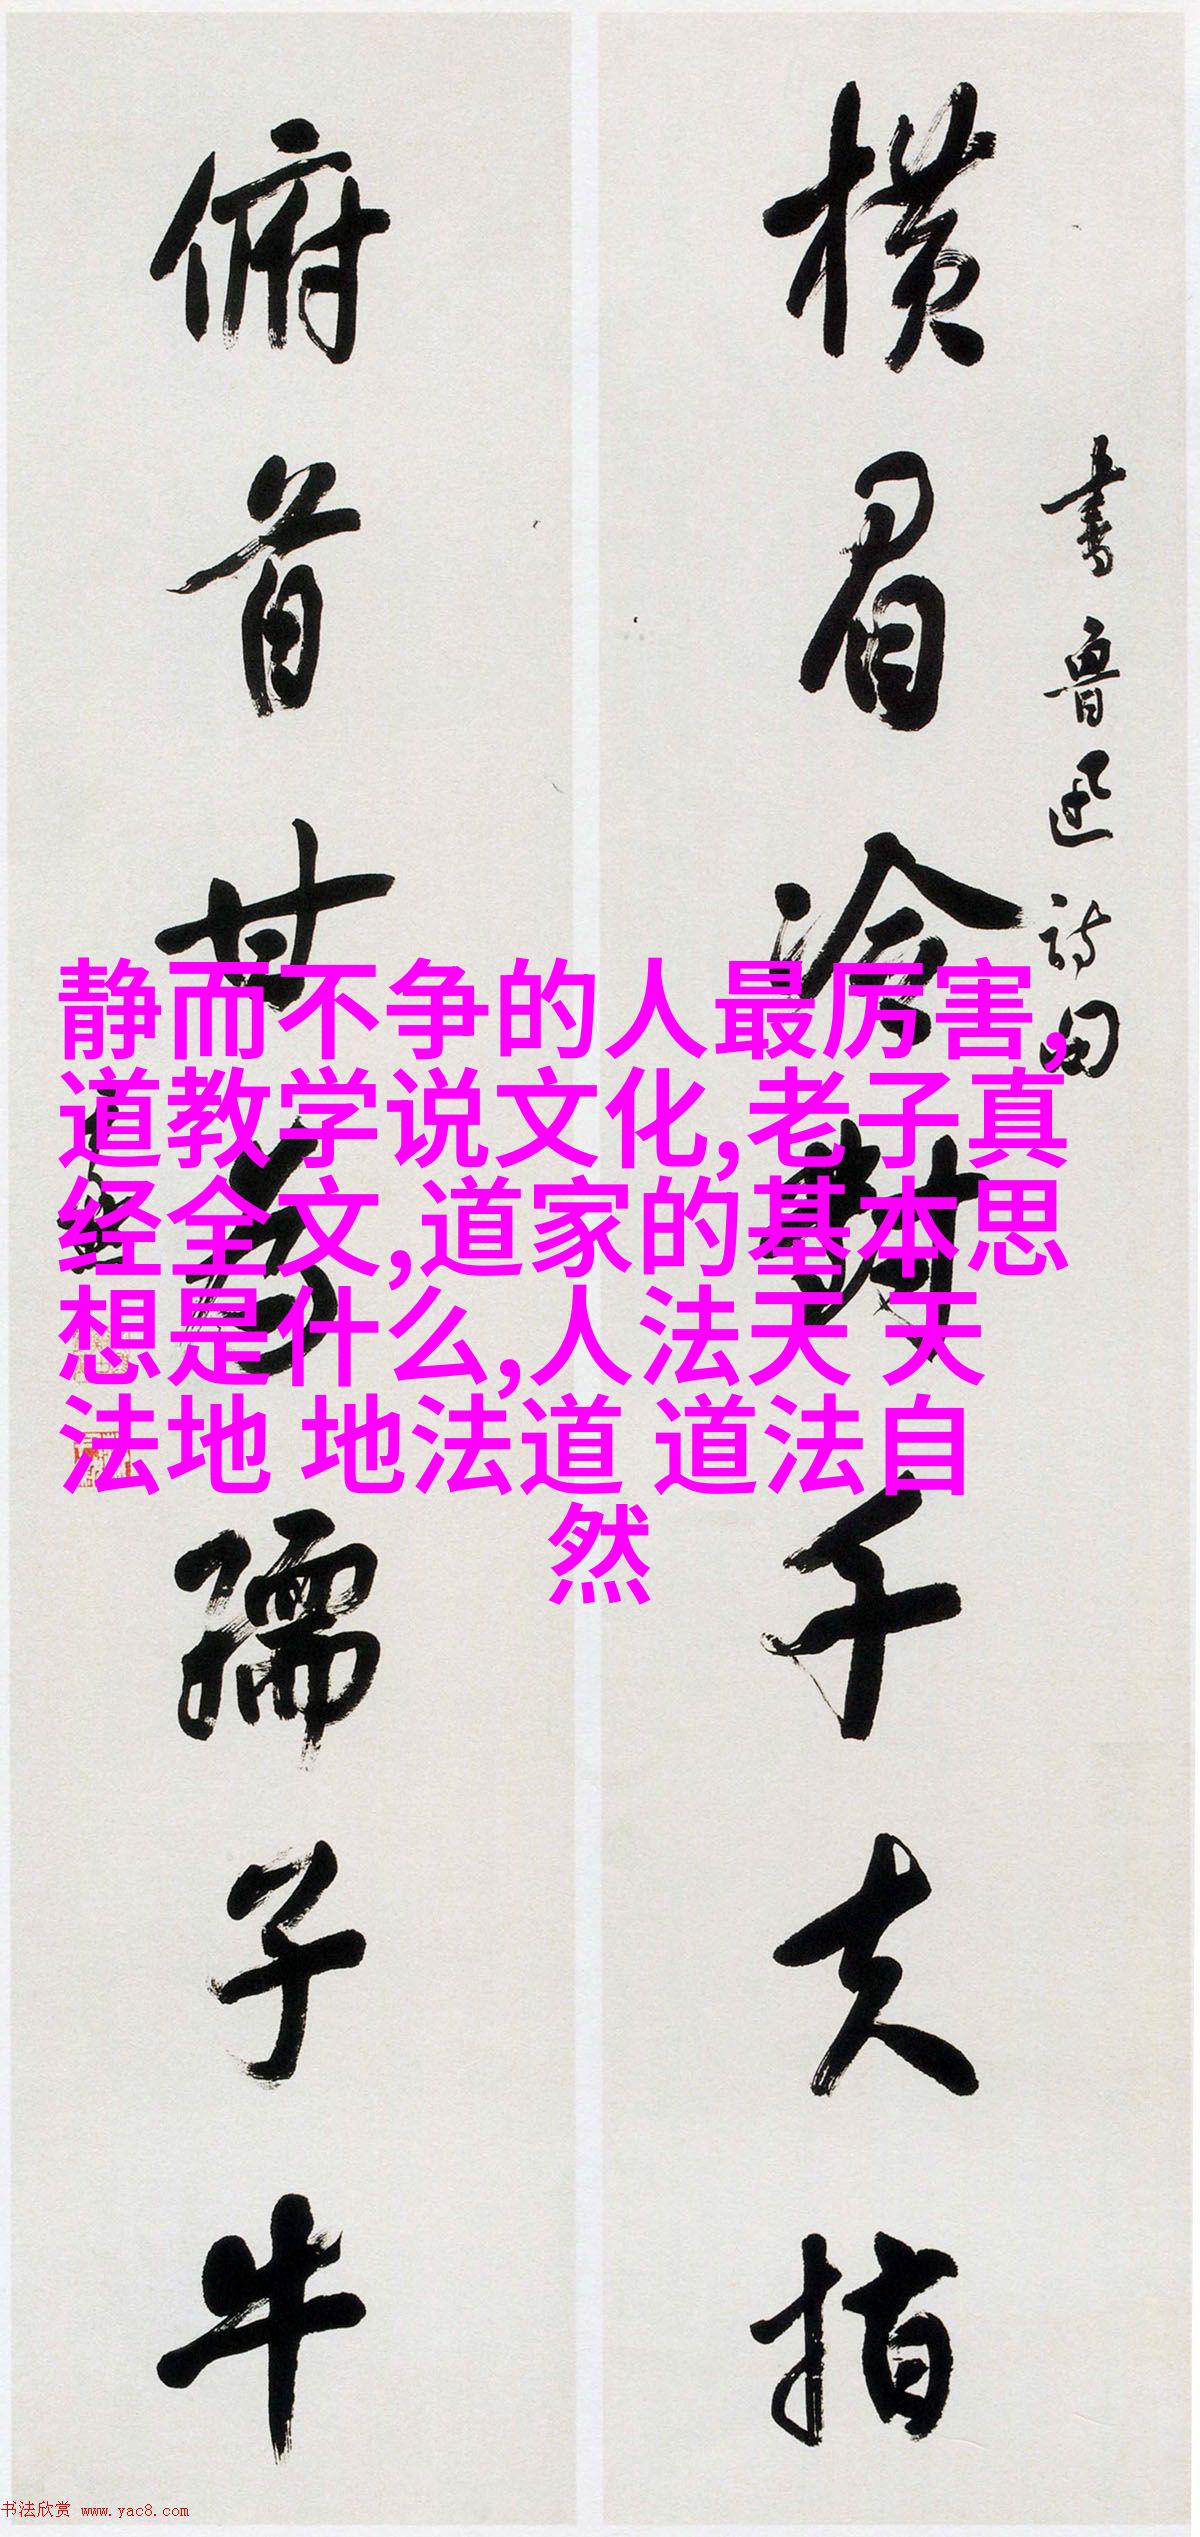 横眉冷对千夫指
书鲁迅诗句
俯首甘为孺子牛
静而不争的人最厉害,
道教学说文化,老子真
经全文,道家的基本思
想是什么,人法天 天
法地 地法道 道法自
然
书法欣赏 www.yac8.com